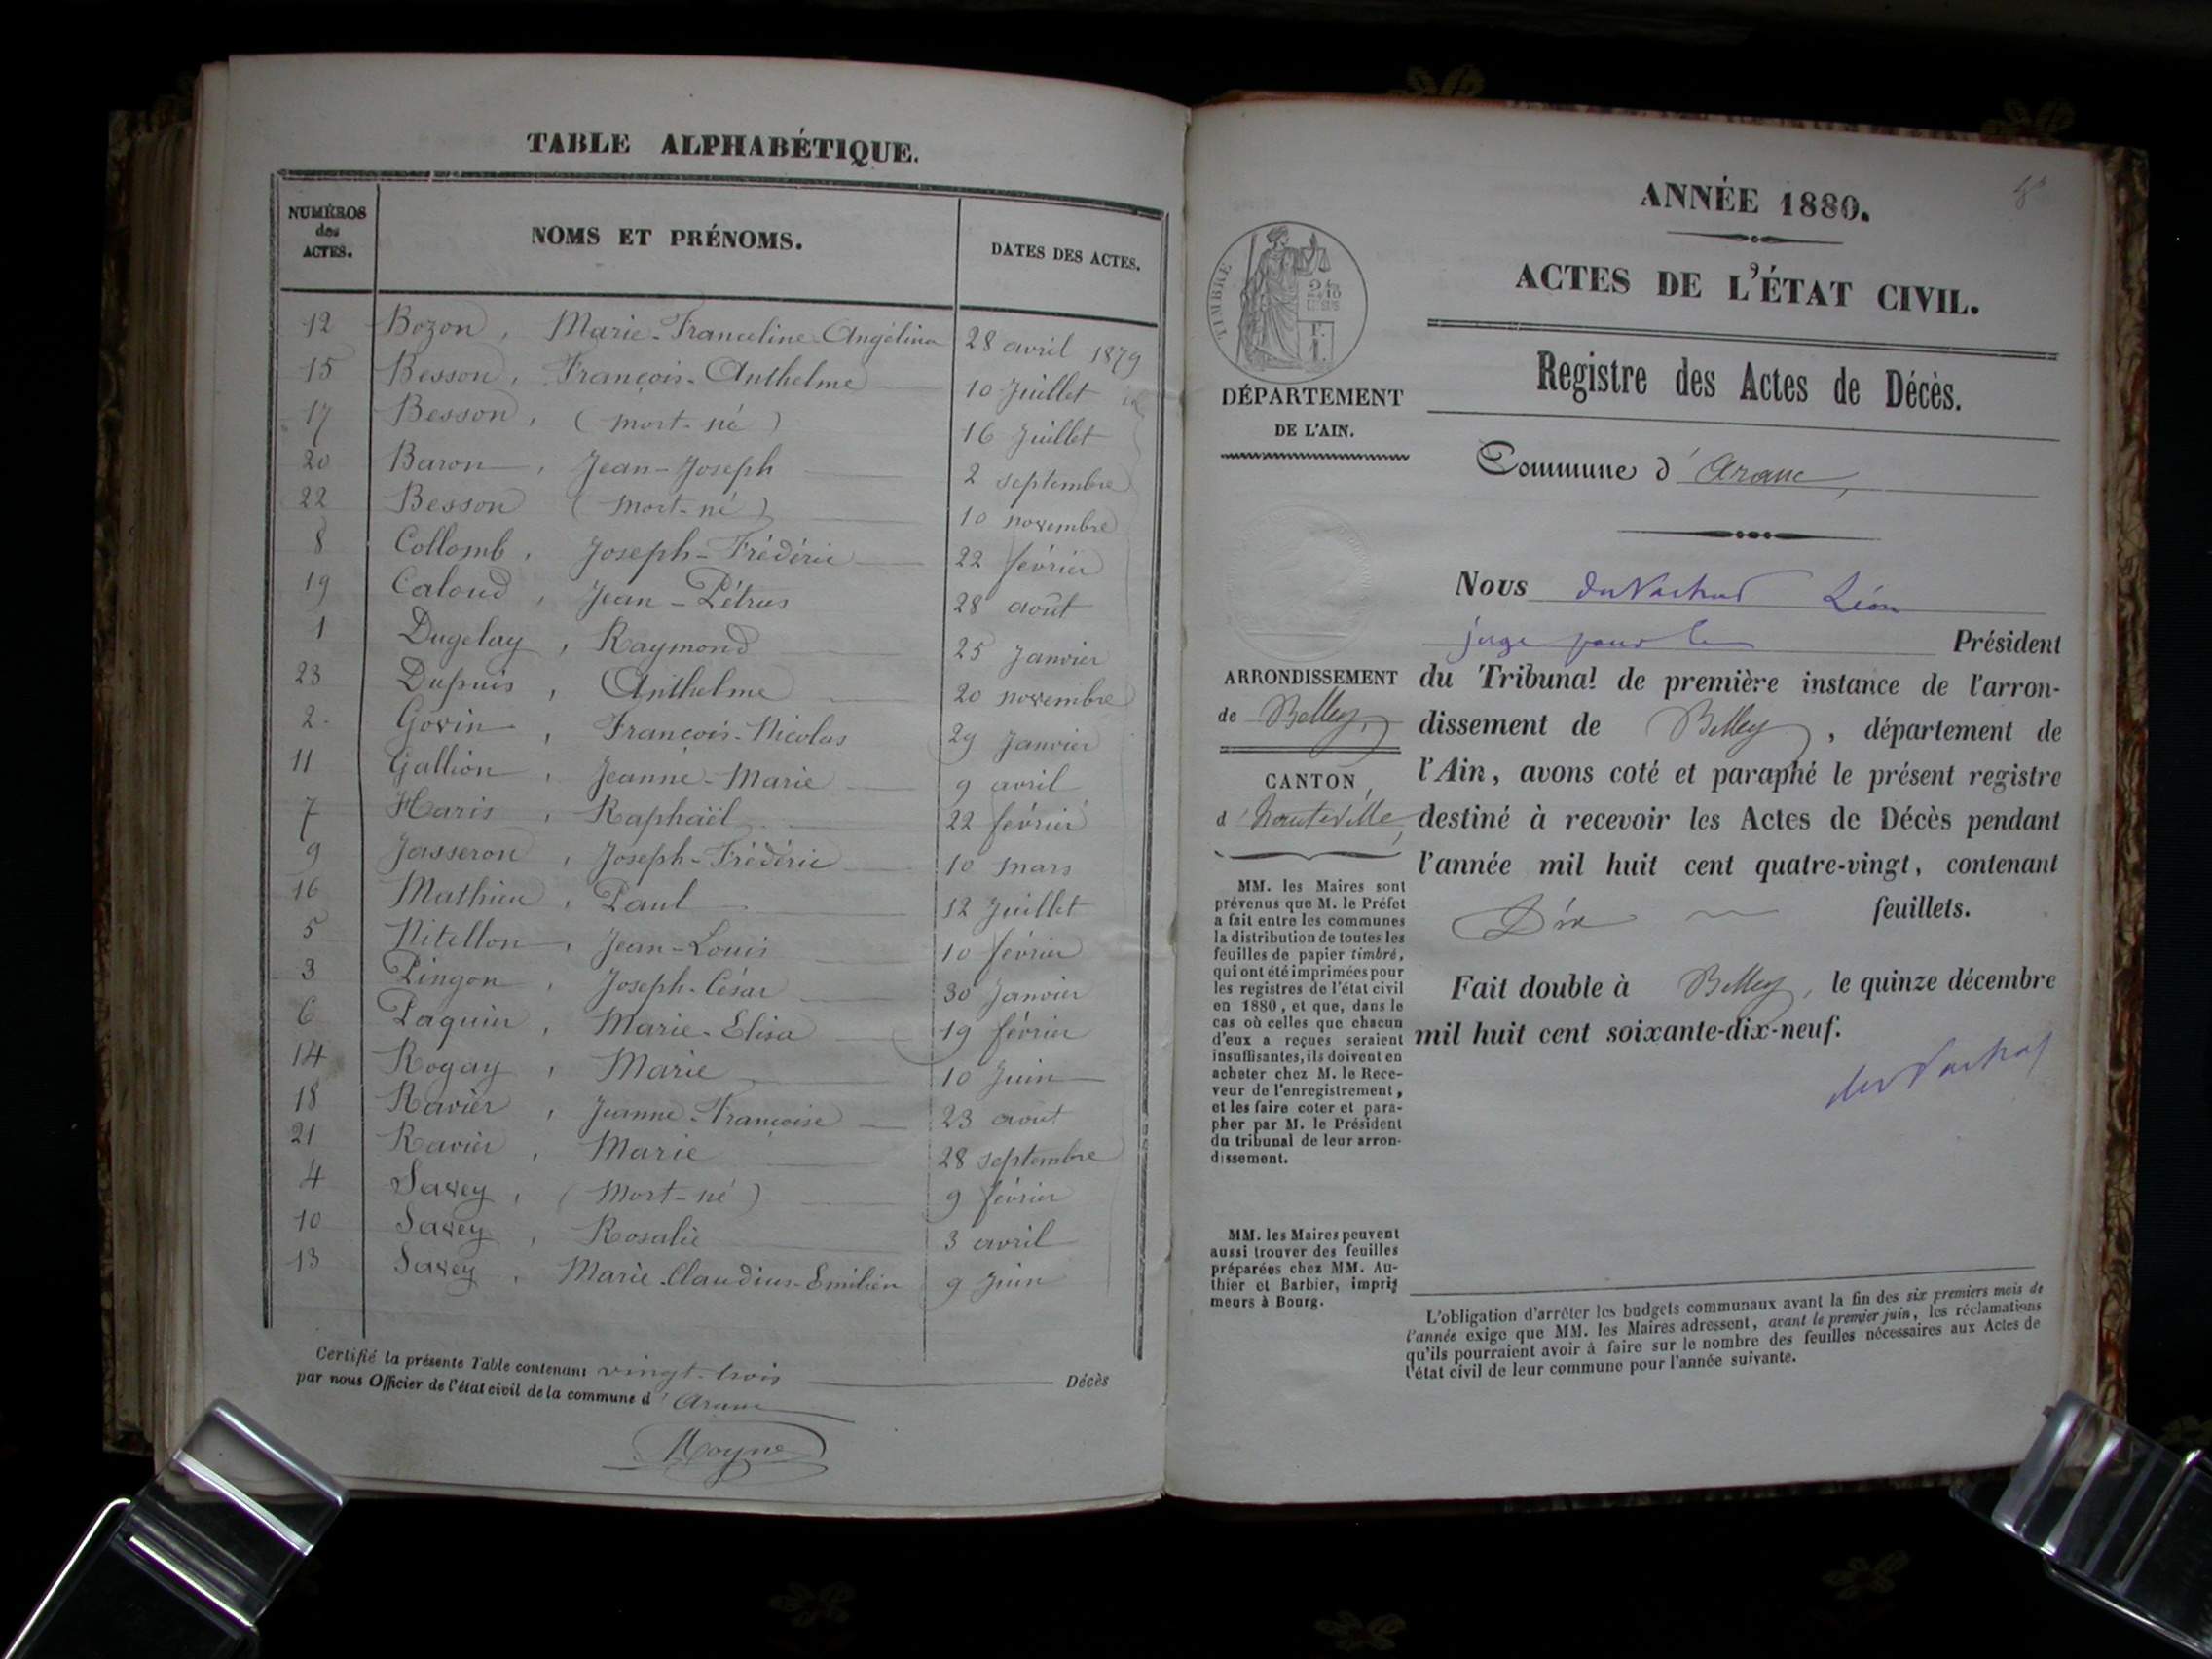 TABLE ALPHABÉTIQUE.
NUMÉROS des ACTES.
NOMS ET PRÉNOMS.
DATES DES ACTES.
12 Bozon, Marie-Franceline-Angélina 28 avril 1879
15 Besson, François-Anthelme 10 Juillet id
17 Besson, (mort-né) 16 Juillet
20 Baron, Jean-Joseph 2 septembre
22 Besson (mort-né) 10 novembre
8 Collomb, Joseph-Frédéric 22 février
19 Caloud, Jean-Pétrus 28 août
1 Dugelay, Raymond 25 Janvier
23 Dupuis, Anthelme 20 novembre
2. Govin, François-Nicolas 29 Janvier
11 Gallion, Jeanne-Marie 9 avril
7 Haris, Raphaël 22 février
9 Jasseron, Joseph-Frédéric 10 mars
16 Mathieu, Paul 12 Juillet
5 Nitellon, Jean-Louis 10 février
3 Pingon, Joseph-César 30 Janvier
6 Paquin, Marie-Elisa 19 février
14 Rogay, Marie 10 Juin
18 Ravier, Jeanne-Françoise 23 août
21 Ravier, Marie 28 septembre
4 Savey, (Mort-né) 9 février
10 Savey, Rosalie 3 avril
13 Savey, Marie-Claudius-Emilien 9 Juin
Certifié la présente Table contenant vingt-trois Décès
par nous Officier de l'état civil de la commune d'Aranc
Moyne
ANNÉE 1880.
ACTES DE L'ÉTAT CIVIL.
Registre des Actes de Décès.
Commune d'Aranc,
TIMBRE
DÉPARTEMENT
DE L'AIN.
ARRONDISSEMENT
de Belley,
CANTON
d'hauteville,
MM. les Maires sont
prévenus que M. le Préfet
a fait entre les communes
la distribution de toutes les
feuilles de papier timbré,
qui ont été imprimées pour
les registres de l'état civil
en 1880, et que, dans le
cas où celles que chacun
d'eux a reçues seraient
insuffisantes, ils doivent en
acheter chez M. le Rece-
veur de l'enregistrement,
et les faire coter et para-
pher par M. le Président
du tribunal de leur arron-
dissement.
MM. les Maires peuvent
aussi trouver des feuilles
préparées chez MM. Au-
thier et Barbier, impri-
meurs à Bourg.
Nous Léon
juge pour le Président
du Tribunal de première instance de l'arron-
dissement de Belley, département de
l'Ain, avons coté et paraphé le présent registre
destiné à recevoir les Actes de Décès pendant
l'année mil huit cent quatre-vingt, contenant
Dix feuillets.
Fait double à Belley, le quinze décembre
mil huit cent soixante-dix-neuf.
L'obligation d'arrêter les budgets communaux avant la fin des six premiers mois de
l'année exige que MM. les Maires adressent, avant le premier juin, les réclamations
qu'ils pourraient avoir à faire sur le nombre des feuilles nécessaires aux Actes de
l'état civil de leur commune pour l'année suivante.